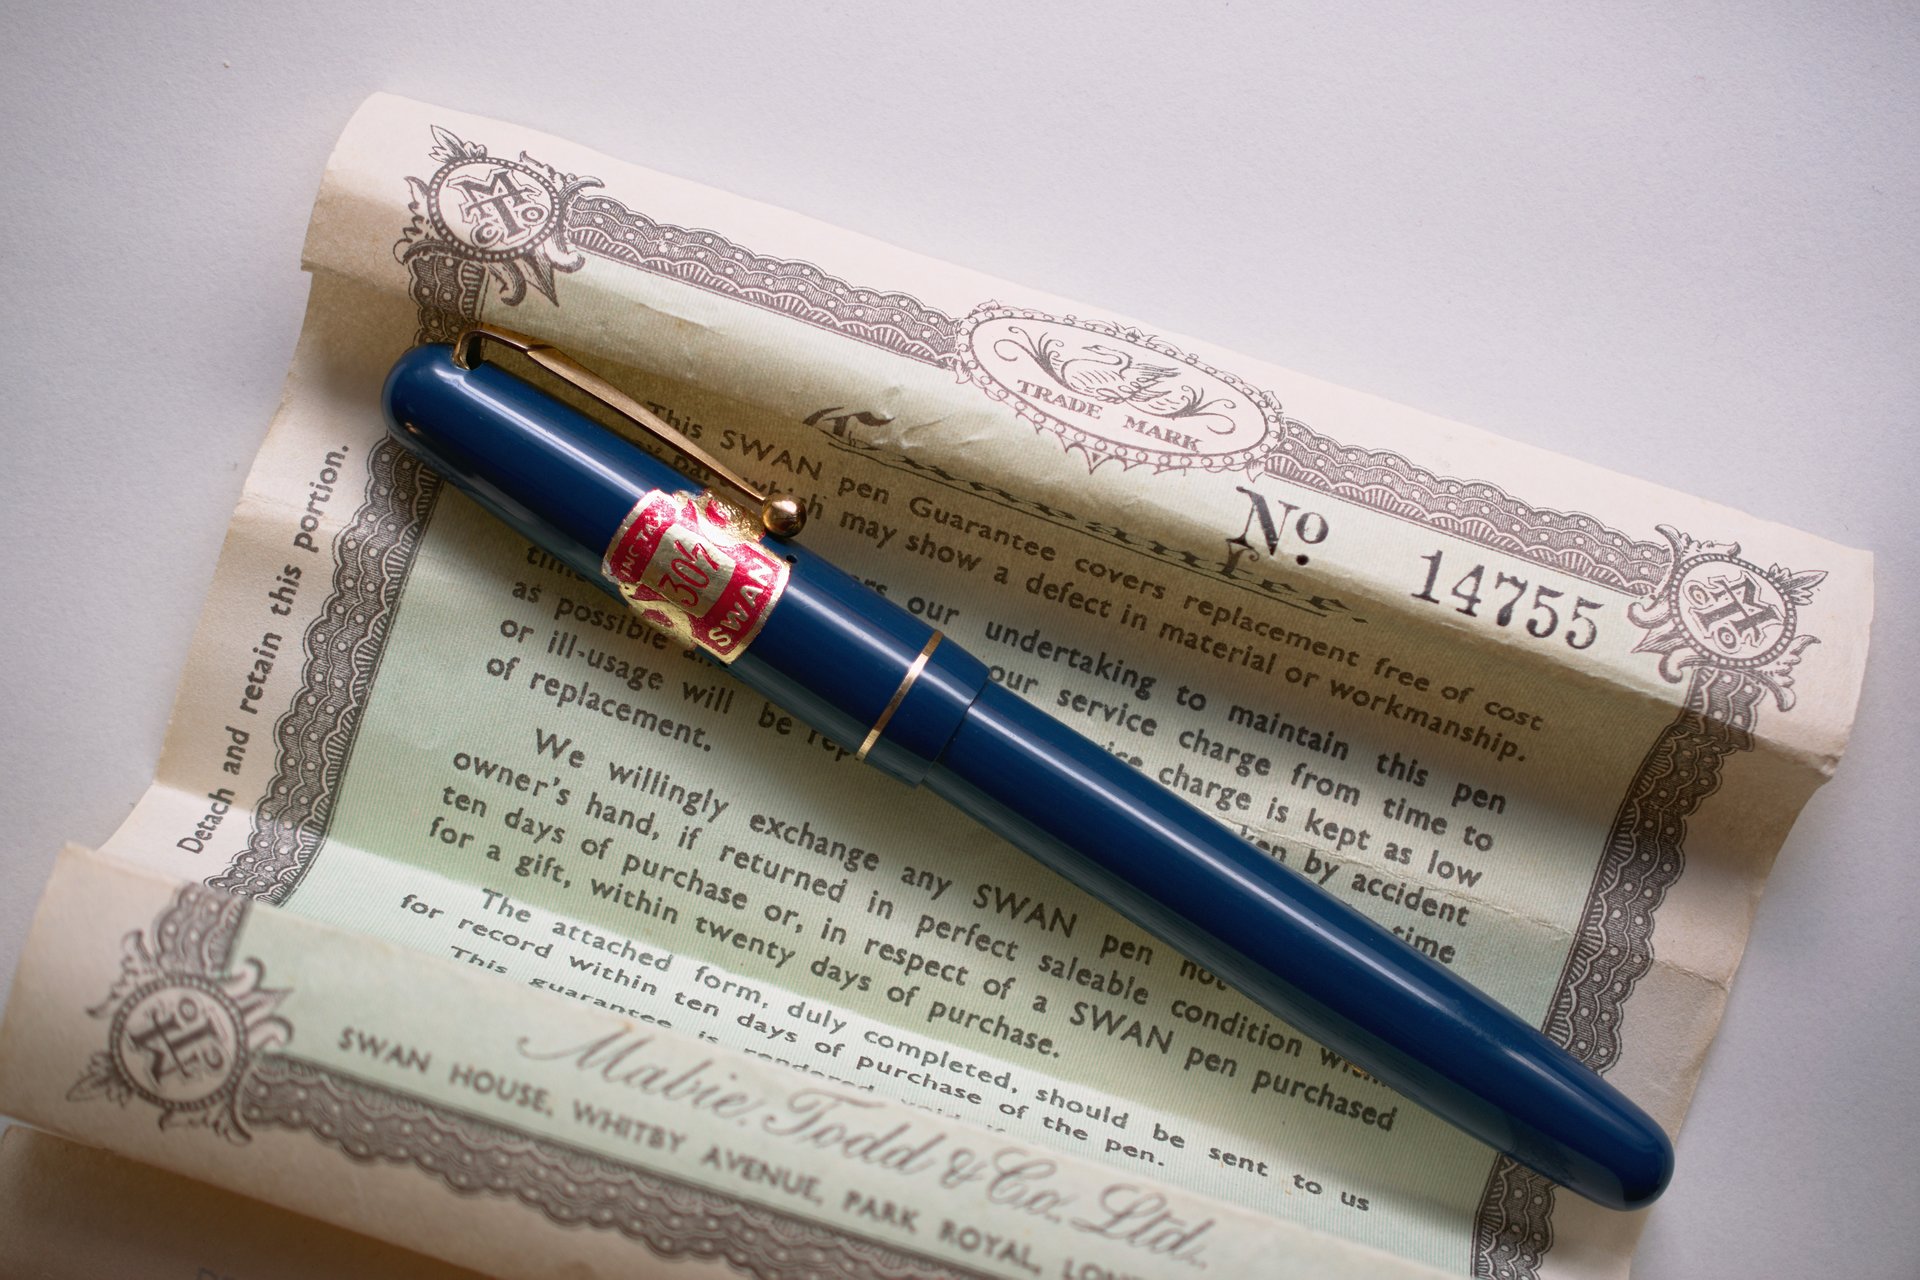 MT&Co
TRADE MARK
MT&Co
Guarantee.
No 14755
This SWAN pen Guarantee covers replacement free of cost
any part which may show a defect in material or workmanship.
our undertaking to maintain this pen
our service charge from time to
time charge is kept as low
as possible by accident
or ill-usage will be time
of replacement.
We willingly exchange any SWAN pen not
owner's hand, if returned in perfect saleable condition within
ten days of purchase or, in respect of a SWAN pen purchased
for a gift, within twenty days of purchase.
The attached form, duly completed, should be sent to us
for record within ten days of purchase of the pen.
This guarantee is rendered void
Mabie, Todd & Co. Ltd.
SWAN HOUSE, WHITBY AVENUE, PARK ROYAL,
MT&Co
Detach and retain this portion.
INC TAX
30/-
SWAN